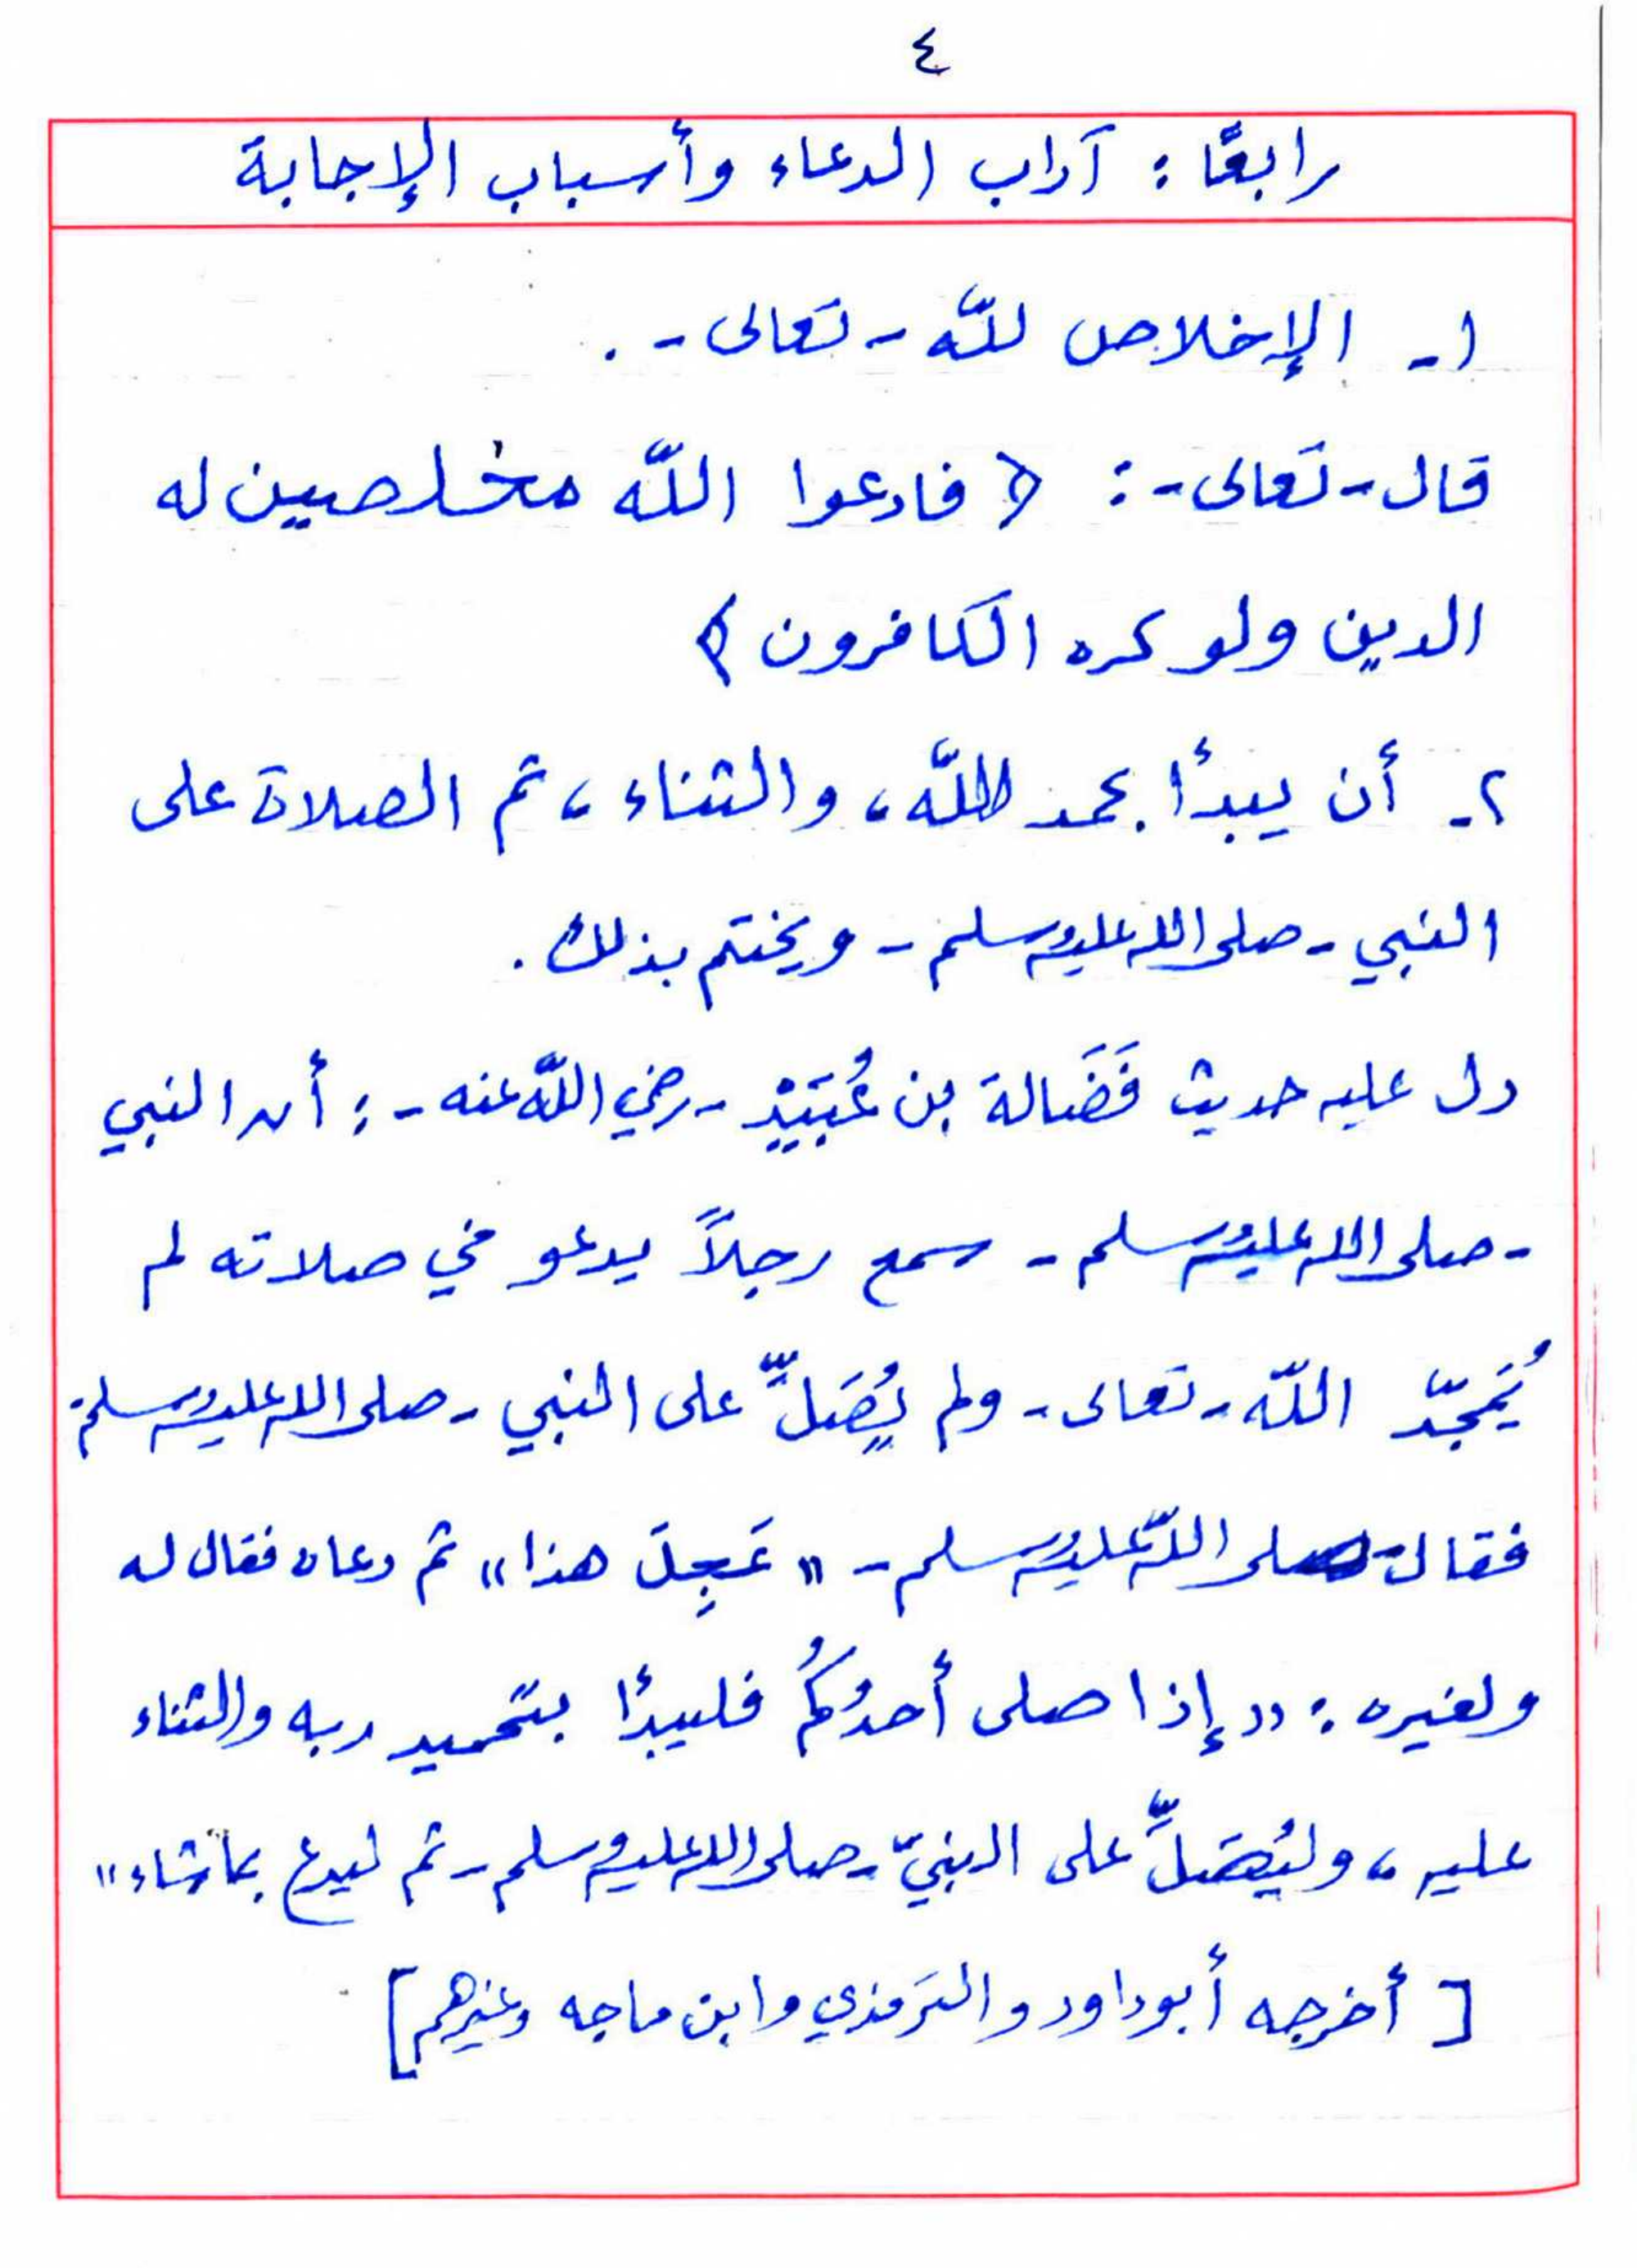 ٤
رابعًا : آداب الدعاء وأسباب الإجابة
١- الإخلاص للّه - تعالى - .
قال - تعالى - : ﴿ فادعوا اللّه مخلصين له
الدين ولو كره الكافرون ﴾
٢- أن يبدأ بحمد اللّه ، والثناء ، ثم الصلاة على
النبي - صلى الله عليه وسلم - ويختم بذلك .
دل عليه حديث فَضَالة بن عُبَيْدٍ - رضي اللّه عنه - : أن النبي
- صلى الله عليه وسلم - سمع رجلاً يدعو في صلاته لم
يُمَجِّد اللّه - تعالى - ولم يُصَلِّ على النبي - صلى الله عليه وسلم -
فقال - صلى اللّه عليه وسلم - " عَجِلَ هذا " ثم دعاه فقال له
ولغيره : " إذا صلى أحدُكُم فليبدأ بتحميد ربه والثناء
عليه ، وليُصَلِّ على النبيّ - صلى الله عليه وسلم - ثم ليدع بما شاء "
[ أخرجه أبو داود والترمذي وابن ماجه وغيرهم ]